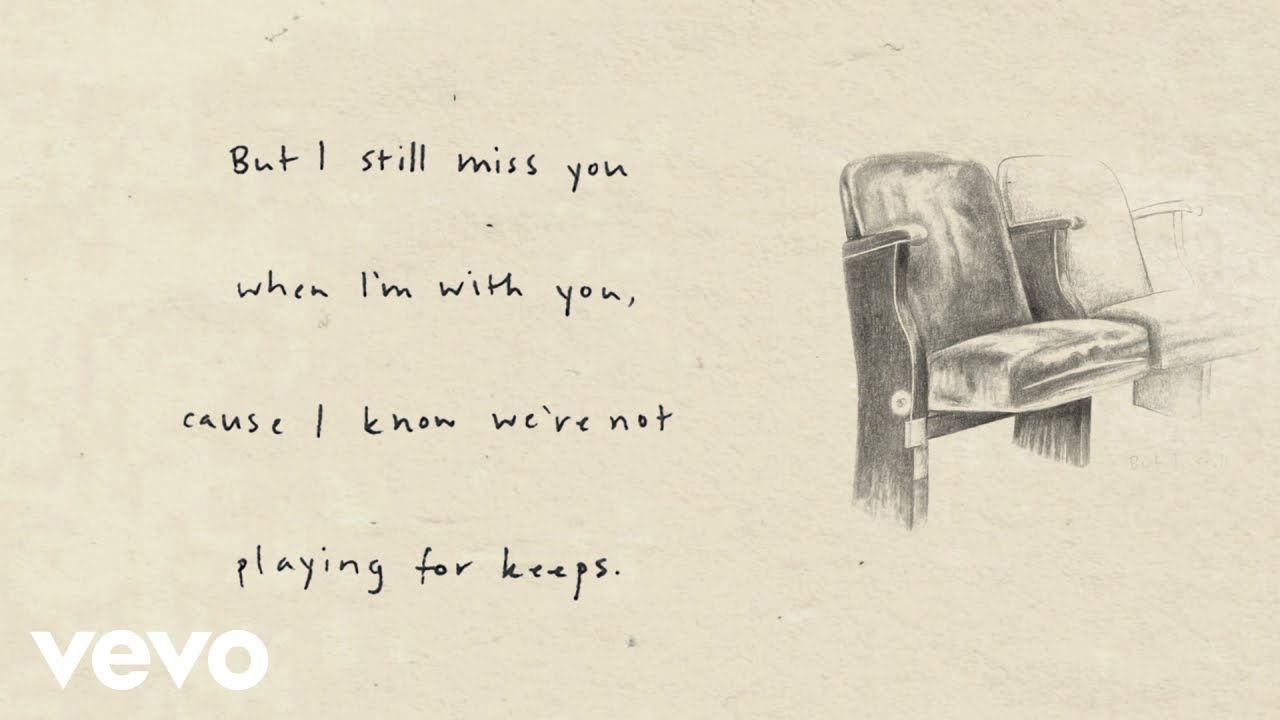 But I still miss you
when I'm with you,
cause I know we're not
playing for keeps.
vevo